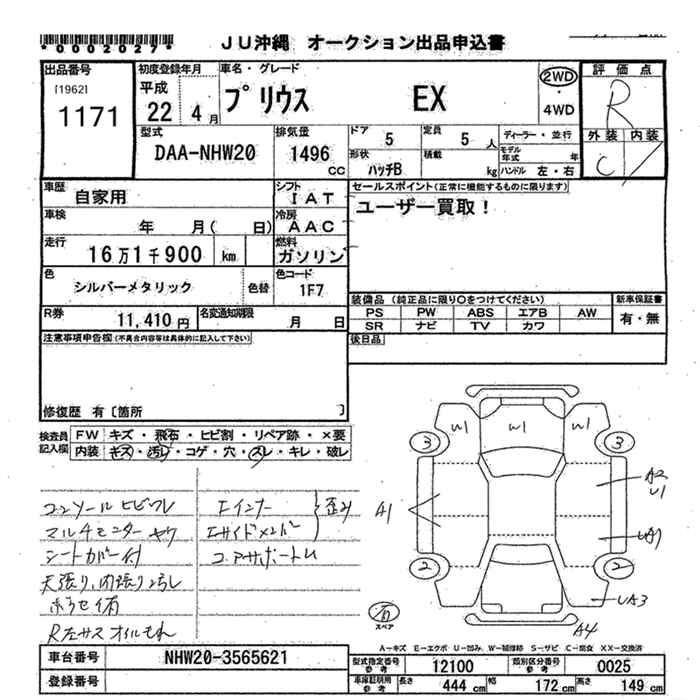 *0002027*
JU沖縄 オークション出品申込書
出品番号 初度登録年月 車名・グレード 評価点
[1962] 平成
1171 22 4月 プリウス EX 2WD・4WD R
外装 内装
C
型式 排気量 ドア 5 定員 5人 ディーラー・並行
DAA-NHW20 1496CC 形状 ハッチB 積載 kg モデル年式 年
ハンドル 左・右
車歴 自家用 シフト IAT セールスポイント(正常に機能するものに限ります)
車検 年 月( 日) 冷房 AAC ユーザー買取!
走行 16万1千900km 燃料 ガソリン
色 シルバーメタリック 色替 色コード 1F7
装備品(純正品に限り○をつけてください) 新車保証書
R券 11,410円 名変通知期限 月 日 PS PW ABS エアB AW 有・無
SR ナビ TV カワ
注意事項申告欄(不具合内容等は具体的に記入して下さい) 後日品
修復歴 有〔箇所 〕
検査員記入欄 FW キズ・飛石・ヒビ割・リペア跡・×要
内装 キズ・汚レ・コゲ・穴・スレ・キレ・破レ
W1 W1 W1
3 3
A2
U1
A1 UA1
2 2
UA3
A4
有
スペア
コンソールヒビワレ
マルチモニターヤケ
シートカバー付
天張り、内張り汚れ
Eインナー
Eサイドメンバー
コアサポートム
歪み
R左サスオイルもれ
A-キズ E-エクボ U-凹み W-補修跡 S-サビ C-腐食 XX-交換済
車台番号 NHW20-3565621 型式指定番号 参考 12100 類別区分番号 参考 0025
登録番号 車庫証明用 参考 長さ 444cm 幅 172cm 高さ 149cm